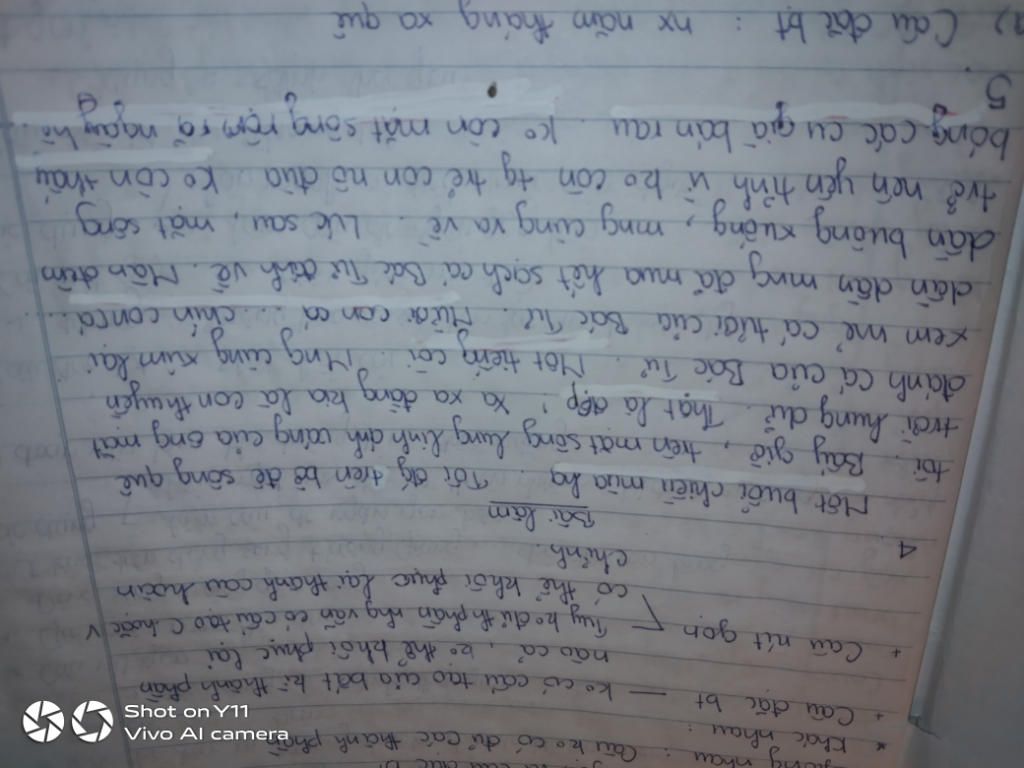 giống nhau : Câu ko có đủ các thành phần
* Khác nhau :
+ Câu đặc bt — ko có cấu tạo của bất kì thành phần
nào cả, ko thể khôi phục lại
+ Câu rút gọn Tuy ko đủ th phần nhg vẫn có cấu tạo C hoặc V
có thể khôi phục lại thành câu hoàn
chỉnh.
4
Bài làm
Một buổi chiều mùa hạ. Tôi trên bờ đê sông quê
tôi. Bấy giờ, trên mặt sông lung linh ánh vàng của ông mặt
trời hung dữ. Thật là đẹp! Xa xa đằng kia là con thuyền
đánh cá của Bác Tư. Một tiếng còi. Mng cùng xúm lại
xem mẻ cá tươi của Bác Tư. Mười con cá... chín con cá...
dần dần mng đã mua hết sạch cá Bác Tư đành về. Màn đêm
dần buông xuống, mng cùng ra về. Lúc sau, mặt sông
trở nên yên tĩnh vì ko còn tg trẻ con nô đùa. Ko còn thấy
bóng các cụ già bán rau. Ko còn mặt sông rộm rã ngày hè.
5.
a) Câu đặc bt : nx năm tháng xa quê
Shot on Y11
Vivo AI camera